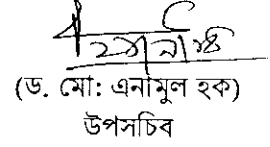 (ড. মো: এনামুল হক)
উপসচিব